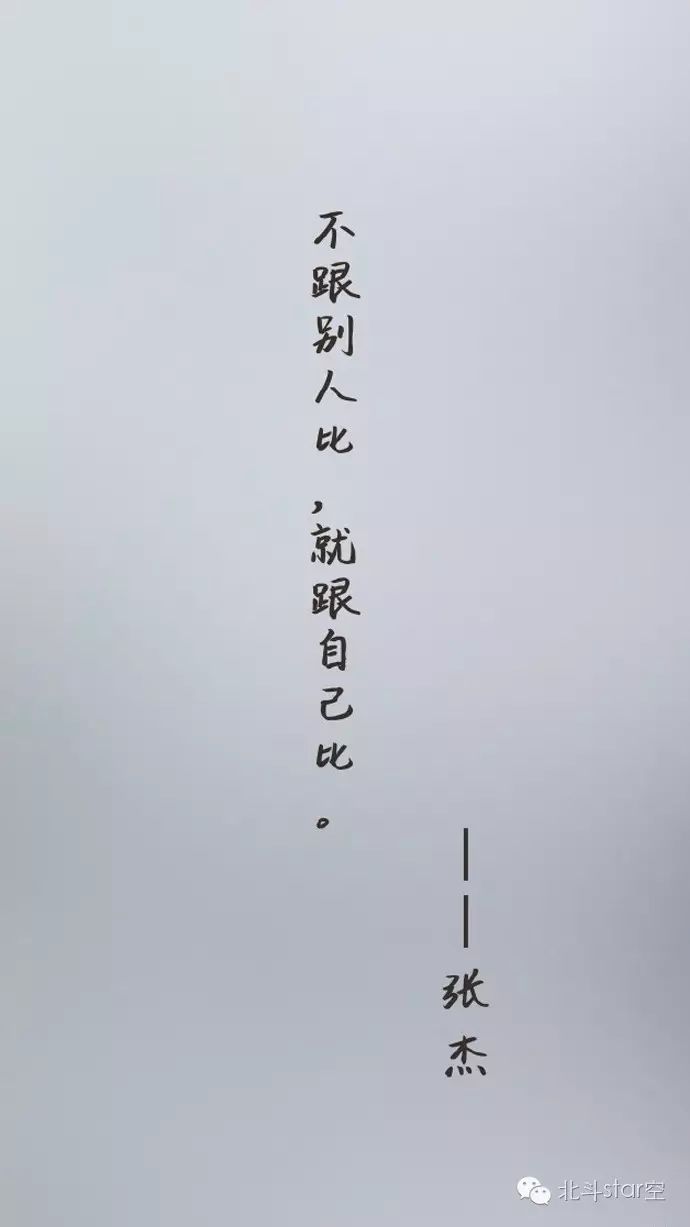 不跟别人比，就跟自己比。
——张杰
北斗star空